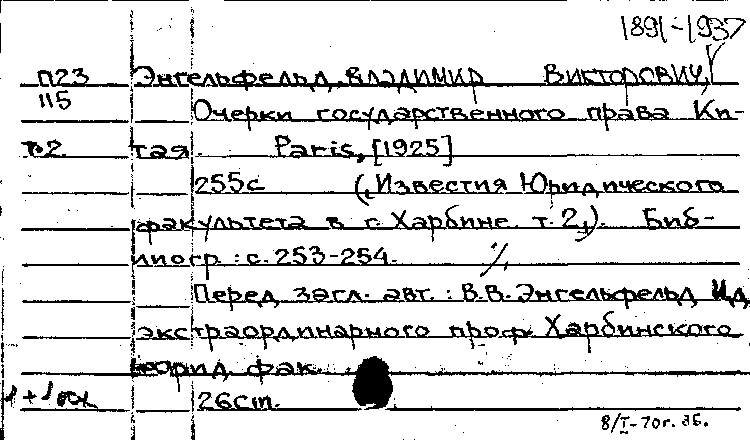 1891-1937
п23 Энгельфельд, Владимир Викторович,
115 Очерки государственного права Ки-
т.2 тая. Paris, [1925]
255с („Известия Юридического
факультета в г. Харбине. т. 2„). Биб-
лиогр.: с. 253-254.
Перед загл. авт.: В.В. Энгельфельд, И.д.
экстраординарного проф. Харбинского
юрид. фак.
26cm.
8/I-70г. аб.